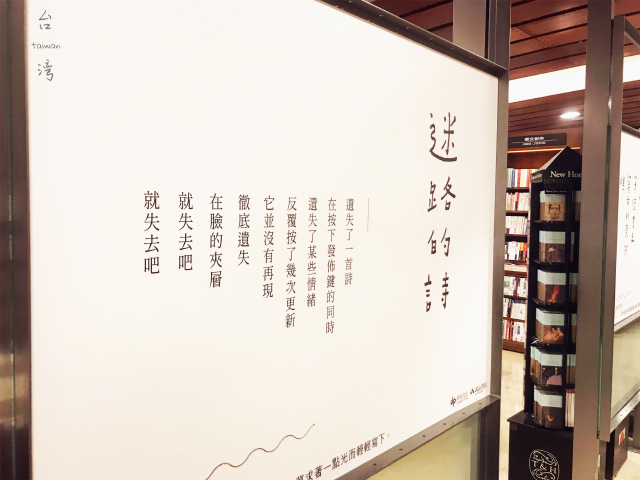 台
taiwan
湾
迷路的詩
遺失了一首詩
在按下發佈鍵的同時
遺失了某些情緒
反覆按了幾次更新
它並沒有再現
徹底遺失
在臉的夾層
就失去吧
就失去吧
求著一點光而輕輕寫下。
New Hor